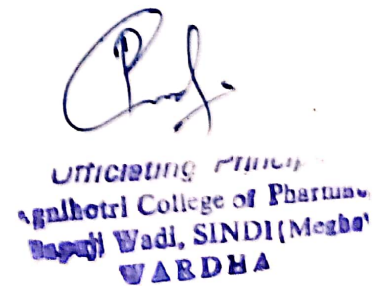 Officiating Princip
Agnihotri College of Pharma
Bapuji Wadi, SINDI (Megha
WARDHA